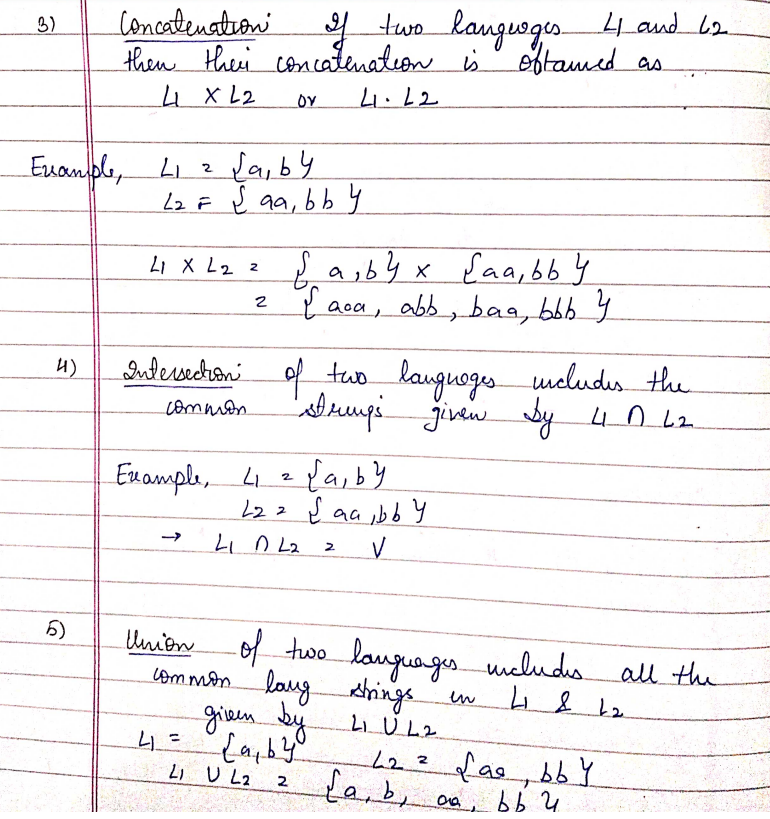 3) Concatenation: If two languages L1 and L2
then their concatenation is obtained as
L1 X L2 or L1 . L2
Example, L1 = {a, b}
L2 = { aa, bb }
L1 X L2 = { a, b } x {aa, bb }
= { aaa, abb, baa, bbb }
4) Intersection: of two languages includes the
common strings given by L1 ∩ L2
Example, L1 = {a, b}
L2 = { aa, bb }
→ L1 ∩ L2 = V
5) Union of two languages includes all the
common lang strings in L1 & L2
given by L1 U L2
L1 = {a, b} L2 = {aa, bb}
L1 U L2 = {a, b, aa, bb }